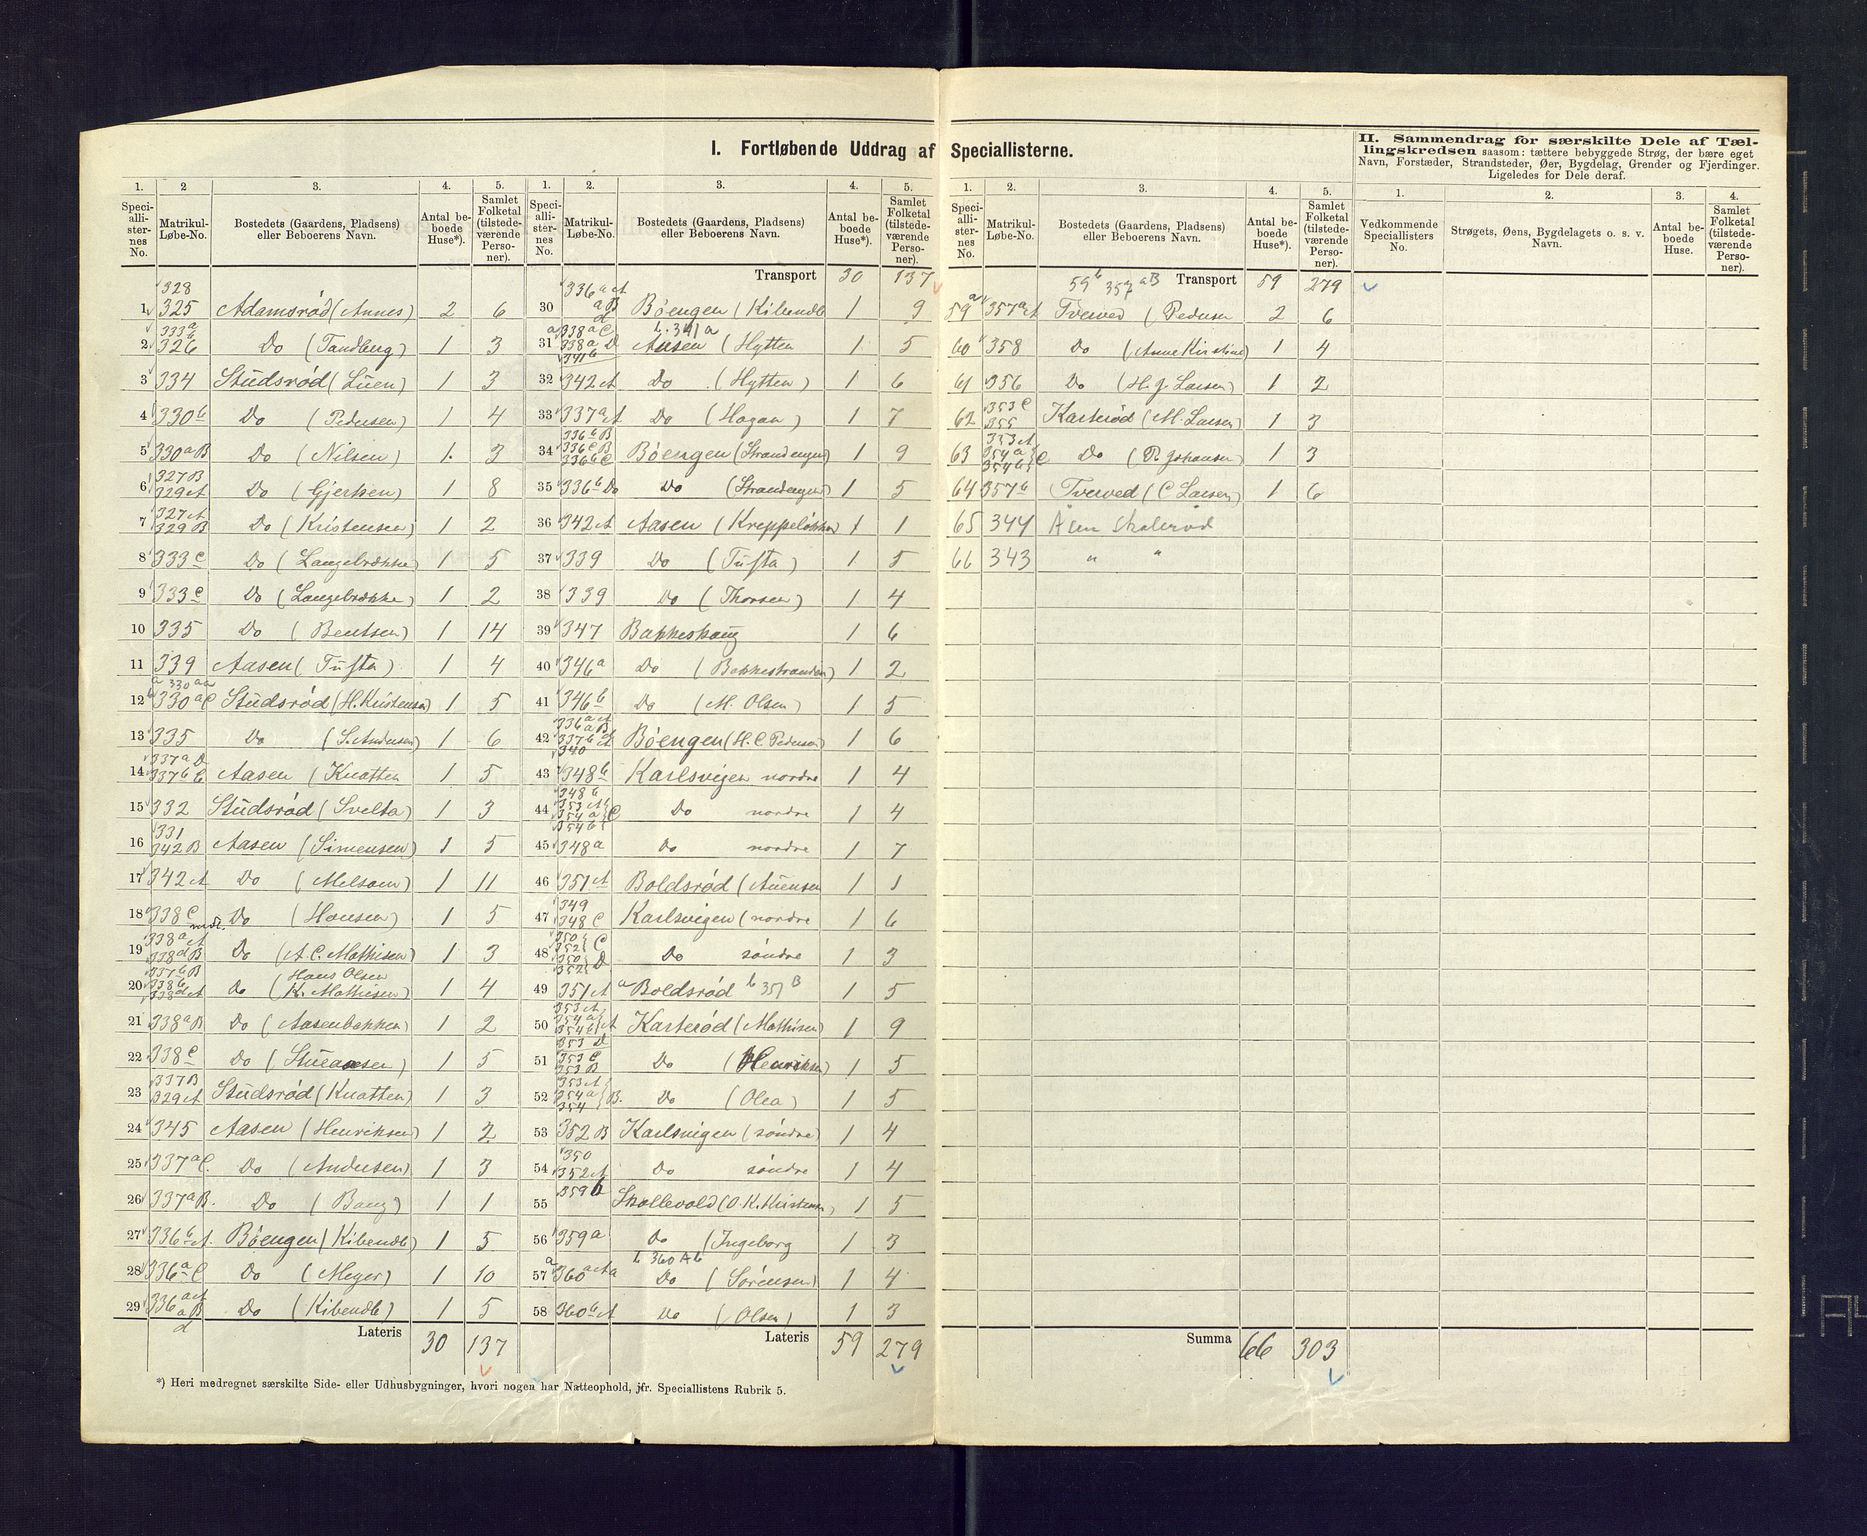 I. Fortløbende Uddrag af Speciallisterne.
II. Sammendrag for særskilte Dele af Tællingskredsen saasom: tættere bebyggede Strøg, der bære eget
Navn, Forstæder, Strandsteder, Øer, Bygdelag, Grender og Fjerdinger.
Ligeledes for Dele deraf.
1. 2 3. 4. 5.
Speciallisternes No. Matrikul-Løbe-No. Bostedets (Gaardens, Pladsens) eller Beboerens Navn. Antal beboede Huse*). Samlet Folketal (tilstedeværende Personer).
1 328 325 Adamsrød (Annes) 2 6
2 333a 326 Do (Tandberg) 1 3
3 334 Studsrød (Luen) 1 3
4 330b Do (Pedersen) 1 4
5 330aB Do (Nilsen) 1 3
6 327B 329A Do (Gjertsen) 1 8
7 327A 329B Do (Kristensen) 1 2
8 333c Do (Langebrække 1 5
9 333c Do (Langebrække) 1 2
10 335 Do (Bentsen) 1 14
11 339 Aasen (Tufta) 1 4
12 a 330aa b 330aC Studsrød (H. Kristensen) 1 5
13 335 Do (S. Andersen) 1 6
14 337aD 337b Aasen (Knatten 1 5
15 332 Studsrød (Svelta) 1 3
16 331 342B Aasen (Simensen) 1 5
17 342A Do (Melsom) 1 11
18 338C Do (Hansen) 1 5
19 338aA 338dB Do (A. C. Mathisen) 1 3
20 337bB 338b 338dA Do Hans Olsen (K. Mathisen) 1 4
21 338aB Do (Aasenbakken) 1 2
22 338c Do 1 5
23 337B 329A Studsrød (Knatten) 1 3
24 345 Aasen (Henriksen) 1 2
25 337aC. Do (Andersen) 1 3
26 337aB. Do (Bang) 1 1
27 336bA. Bøengen (Kibendb) 1 5
28 336aC Do (Meyer) 1 10
29 336aA aB d Do (Kibendb) 1 5
Lateris 30 137
*) Heri medregnet særskilte Side- eller Udhusbygninger, hvori nogen har Natteophold, jfr. Speciallistens Rubrik 5.
1. 2. 3. 4. 5.
Speciallisternes No. Matrikul-Løbe-No. Bostedets (Gaardens, Pladsens) eller Beboerens Navn. Antal beboede Huse*). Samlet Folketal (tilstedeværende Personer).
Transport 30 137
30 336aA aB d Bøengen (Kibendb 1 9
31 a 338aC 338aD 341b b. 341a Aasen (Hytten 1 5
32 342A Do (Hytten) 1 6
33 337aA Do (Hagan) 1 7
34 336bB 336cB 336bC Bøengen (Strandengen) 1 9
35 336bD Do (Strandengen) 1 5
36 342A Aasen (Kreppeløkken) 1 1
37 339 Do (Tufta) 1 5
38 339 Do (Thorsen) 1 4
39 347 Bakkeskaug 1 6
40 346a Do (Bakkestranden) 1 2
41 346b Do (M. Olsen) 1 5
42 336aA 336aB 337bA 340 Bøengen (H. C. Pedersen) 1 6
43 348b Karlsvigen nordre 1 4
44 348b 353A 354a 354b C Do nordre 1 4
45 348a Do nordre 1 7
46 351A Boldsrød (Auensen 1 1
47 349 348C Karlsvigen (nordre 1 6
48 350 352 C 350 352 D Do søndre 1 3
49 351A a Boldsrød b 351B 1 5
50 353A 354a 354b A Karterød (Mathisen) 1 9
51 353D 353C 353B Do (Henriksen) 1 5
52 353A 354a 354 B. Do (Olea) 1 5
53 352B Karlsvigen (søndre) 1 4
54 350 352A Do søndre 1 4
55 359b Skollevold (O. K. Kristensen) 1 5
56 359a Do (Ingeborg 1 3
57 a 360aAa b 360Ab Do (Sørensen) 1 4
58 360bA Do (Olsen) 1 3
Lateris 59 279
1. 2. 3. 4. 5.
Speciallisternes No. Matrikul-Løbe-No. Bostedets (Gaardens, Pladsens) eller Beboerens Navn. Antal beboede Huse*). Samlet Folketal (tilstedeværende Personer).
59b 357aB Transport 59 279
59a 357aA Tveved (Pedersen 2 6
60 358 Do (Anne Kirstine) 1 4
61 356 Do (H. J. Larsen) 1 2
62 353C 355 Karterød (M. Larsen) 1 3
63 353A 354a 354b C Do (R. Johansen) 1 3
64 357b Tveved (C Larsen) 1 6
65 344 Åsen Skolerød
66 343 " "
Summa 66 303
1. 2. 3. 4.
Vedkommende Speciallisters No. Strøgets, Øens, Bygdelagets o. s. v. Navn. Antal beboede Huse. Samlet Folketal (tilstedeværende Personer).